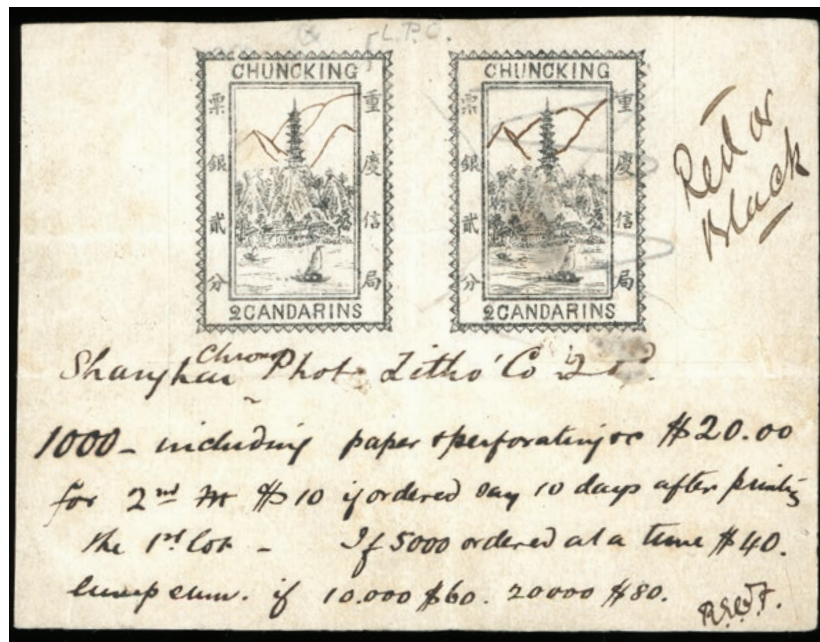 L.P.O.
CHUNCKING
重慶信局
票銀貳分
2 CANDARINS
CHUNCKING
重慶信局
票銀貳分
2 CANDARINS
Red or
Black
Chromo
Shanghai Photo Litho' Co Ld.
1000 - including paper & perforating &c $20.00
for 2nd $10 if ordered say 10 days after printing
the 1st lot - If 5000 ordered at a time $40.
lump sum. if 10.000 $60. 20000 $80.